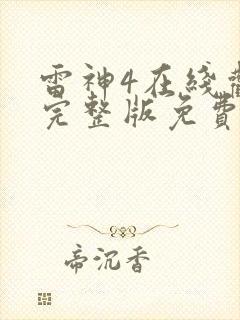 雷神4在线
完整版免费
帝沉香